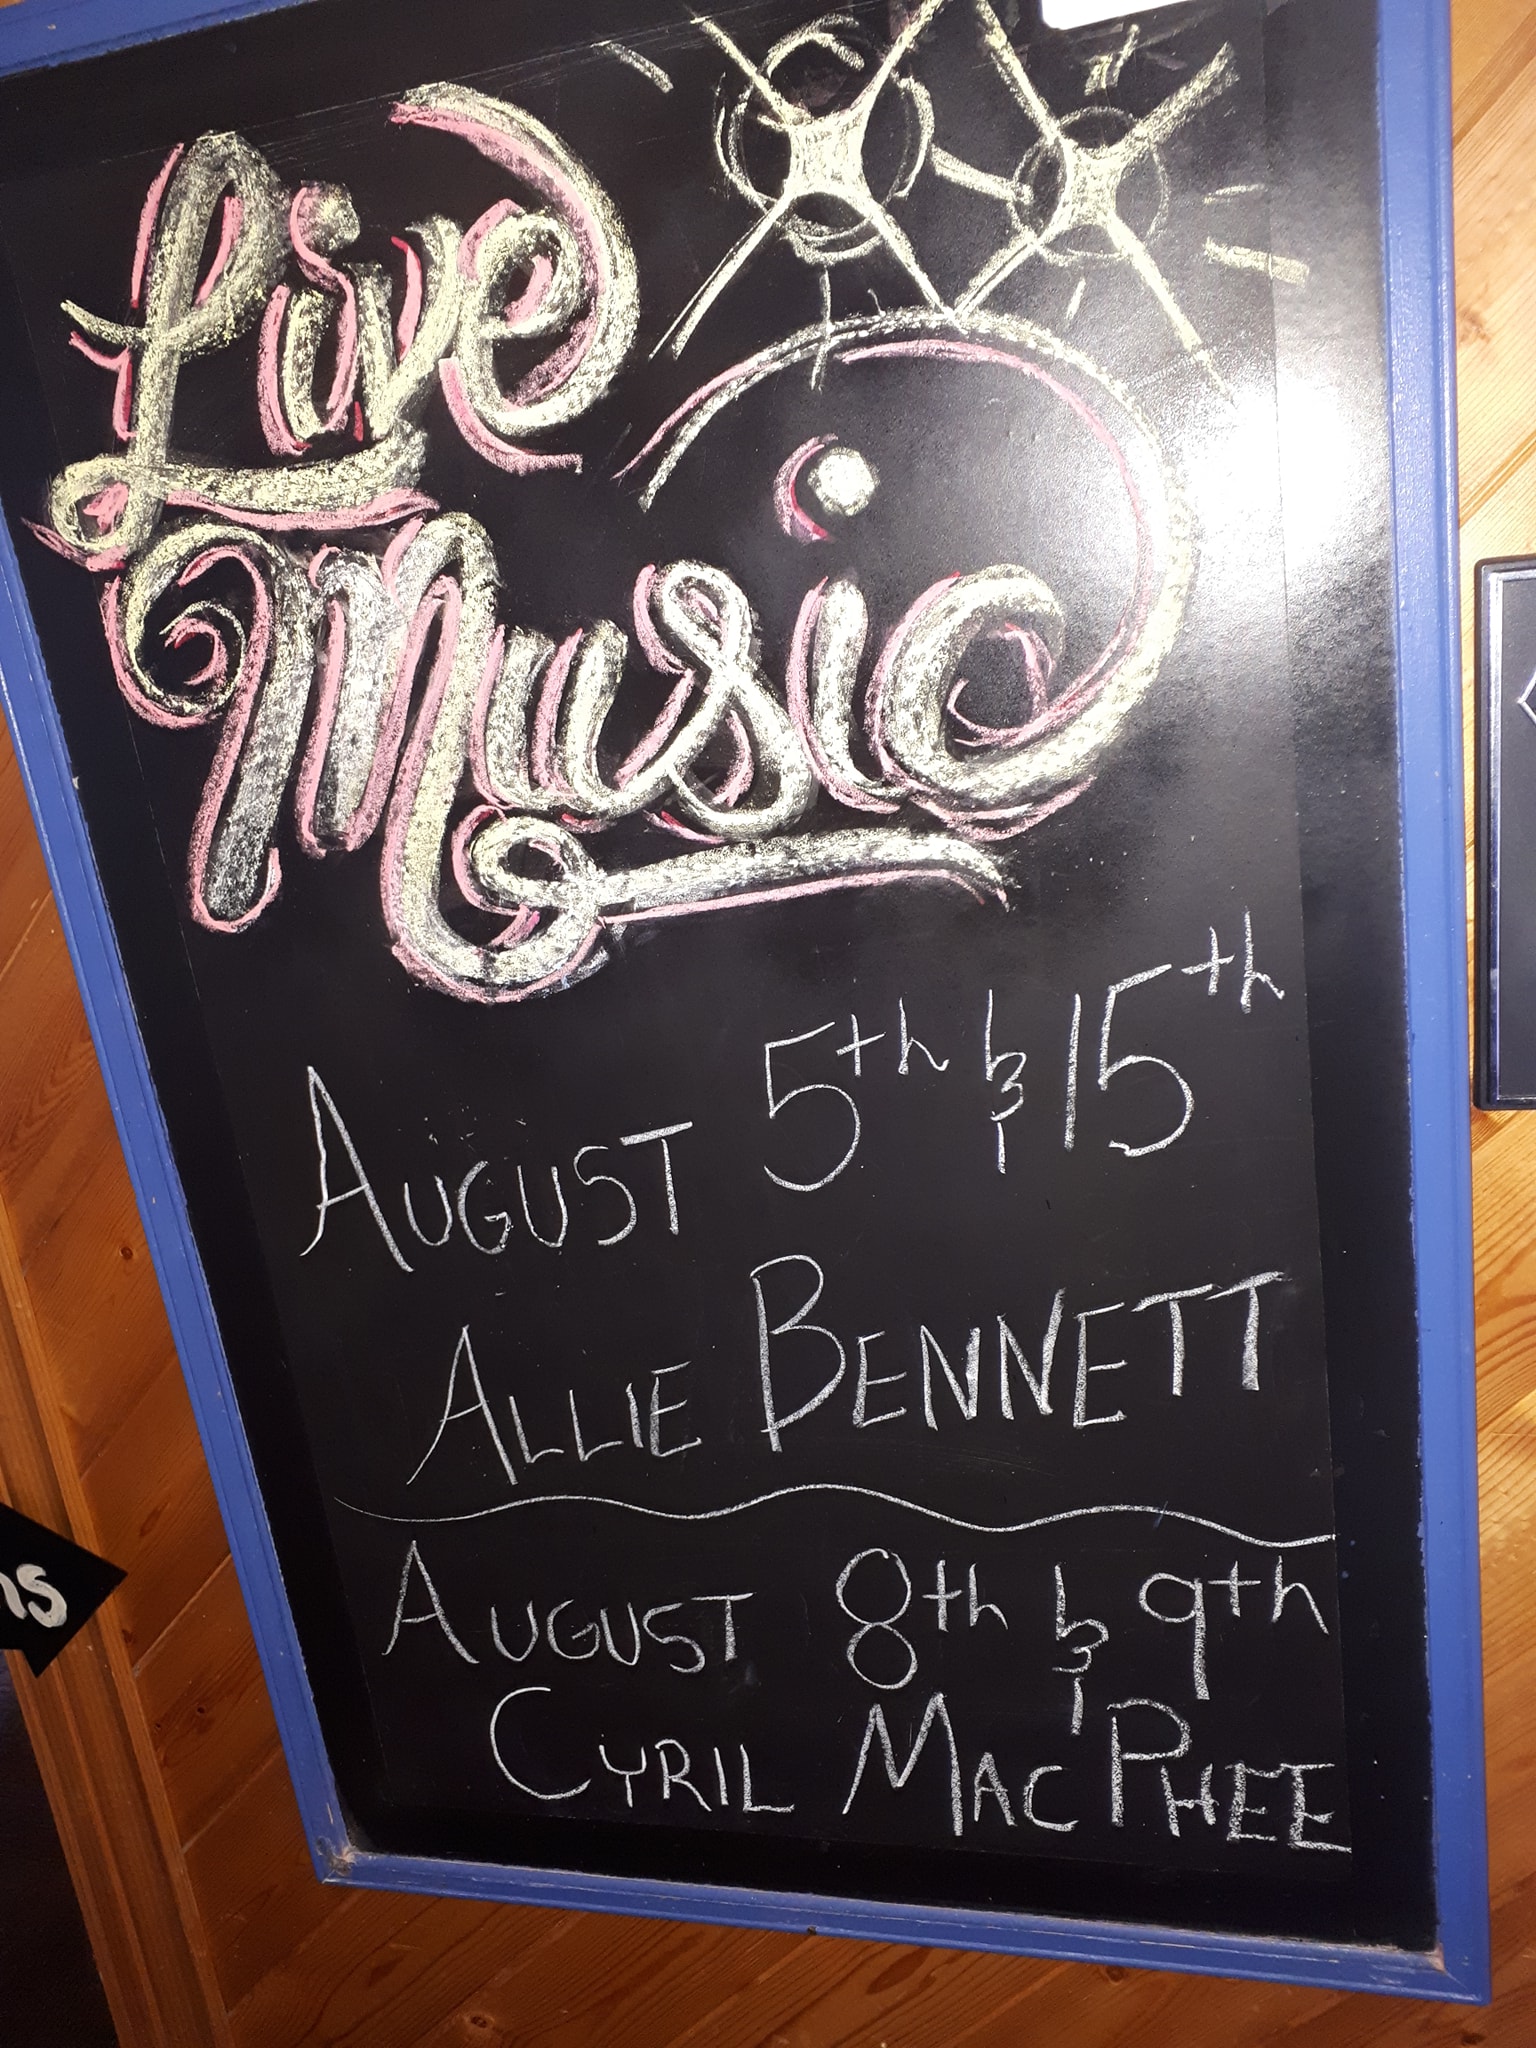 Live
Music
AUGUST 5th & 15th
ALLIE BENNETT
AUGUST 8th & 9th
CYRIL MACPHEE